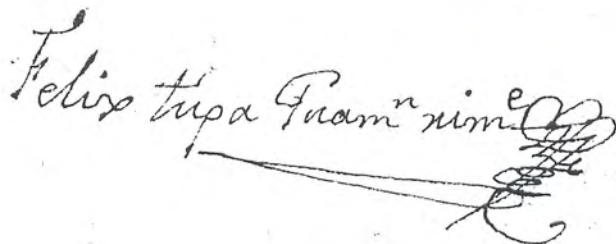 Felix tupa Guamⁿ rimᵉ